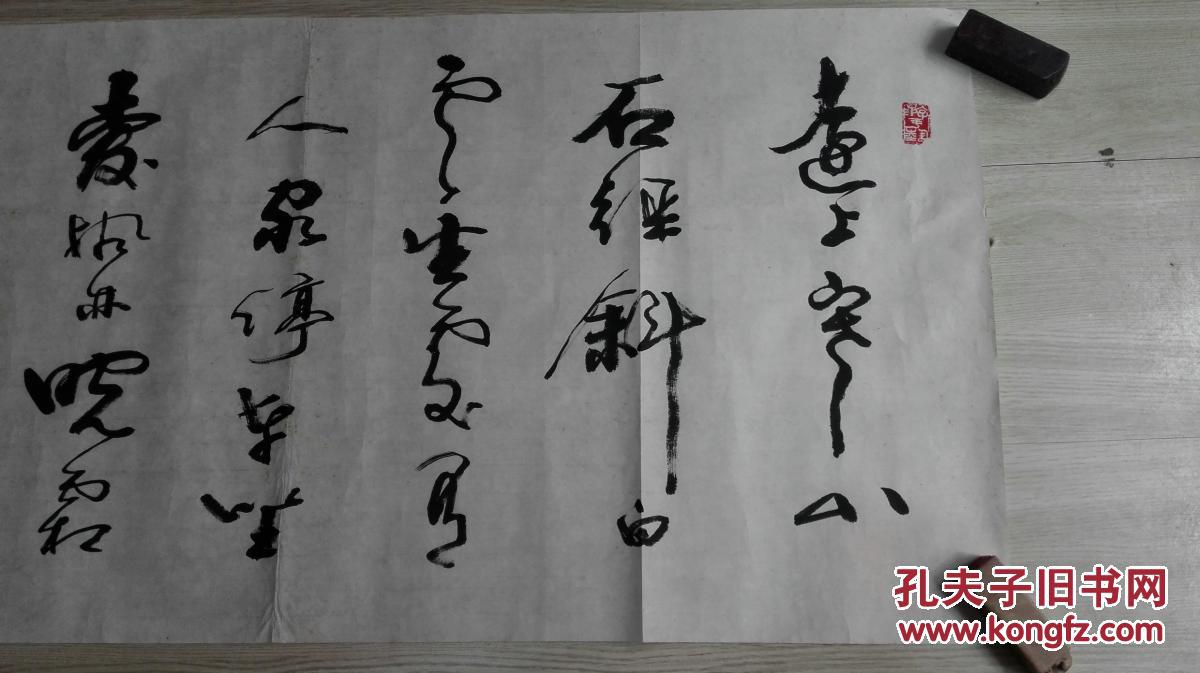 遠上寒山
石徑斜白
雲生處有
人家停車坐
愛楓林晚霜
孔夫子旧书网
www.kongfz.com